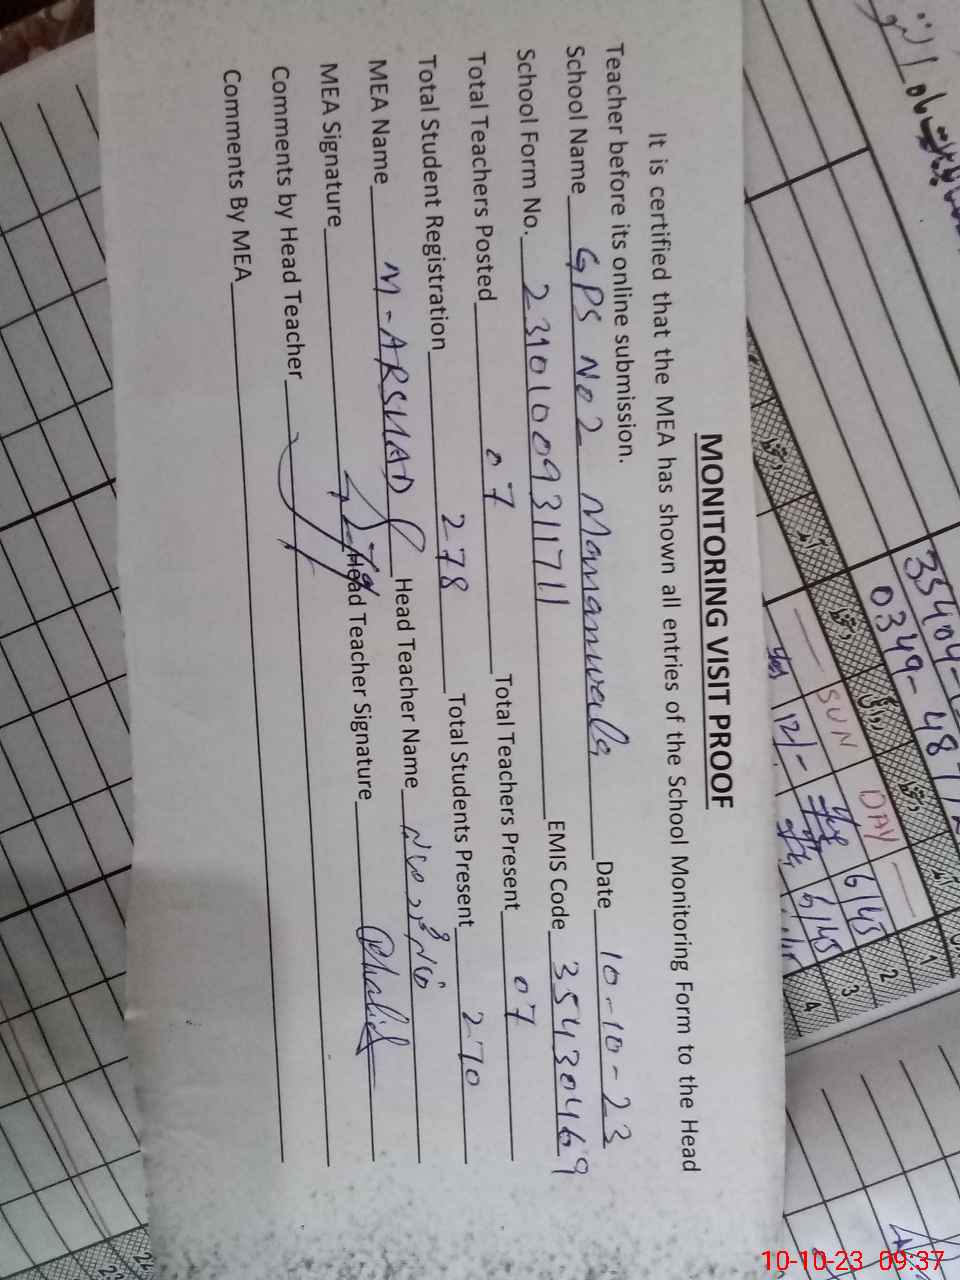 MONITORING VISIT PROOF
It is certified that the MEA has shown all entries of the School Monitoring Form to the Head
Teacher before its online submission.
School Name GPS No2 Mamanwala Date 10-10-23
School Form No. 2310100931711 EMIS Code 35430469
Total Teachers Posted 07 Total Teachers Present 07
Total Student Registration 278 Total Students Present 270
MEA Name M-ARSHAD Head Teacher Name
MEA Signature Head Teacher Signature Khalid
Comments by Head Teacher
Comments By MEA
35404-
0349-487
SUN DAY
12/- 6/45
6/45
1
2
3
4
10-10-23 09:37